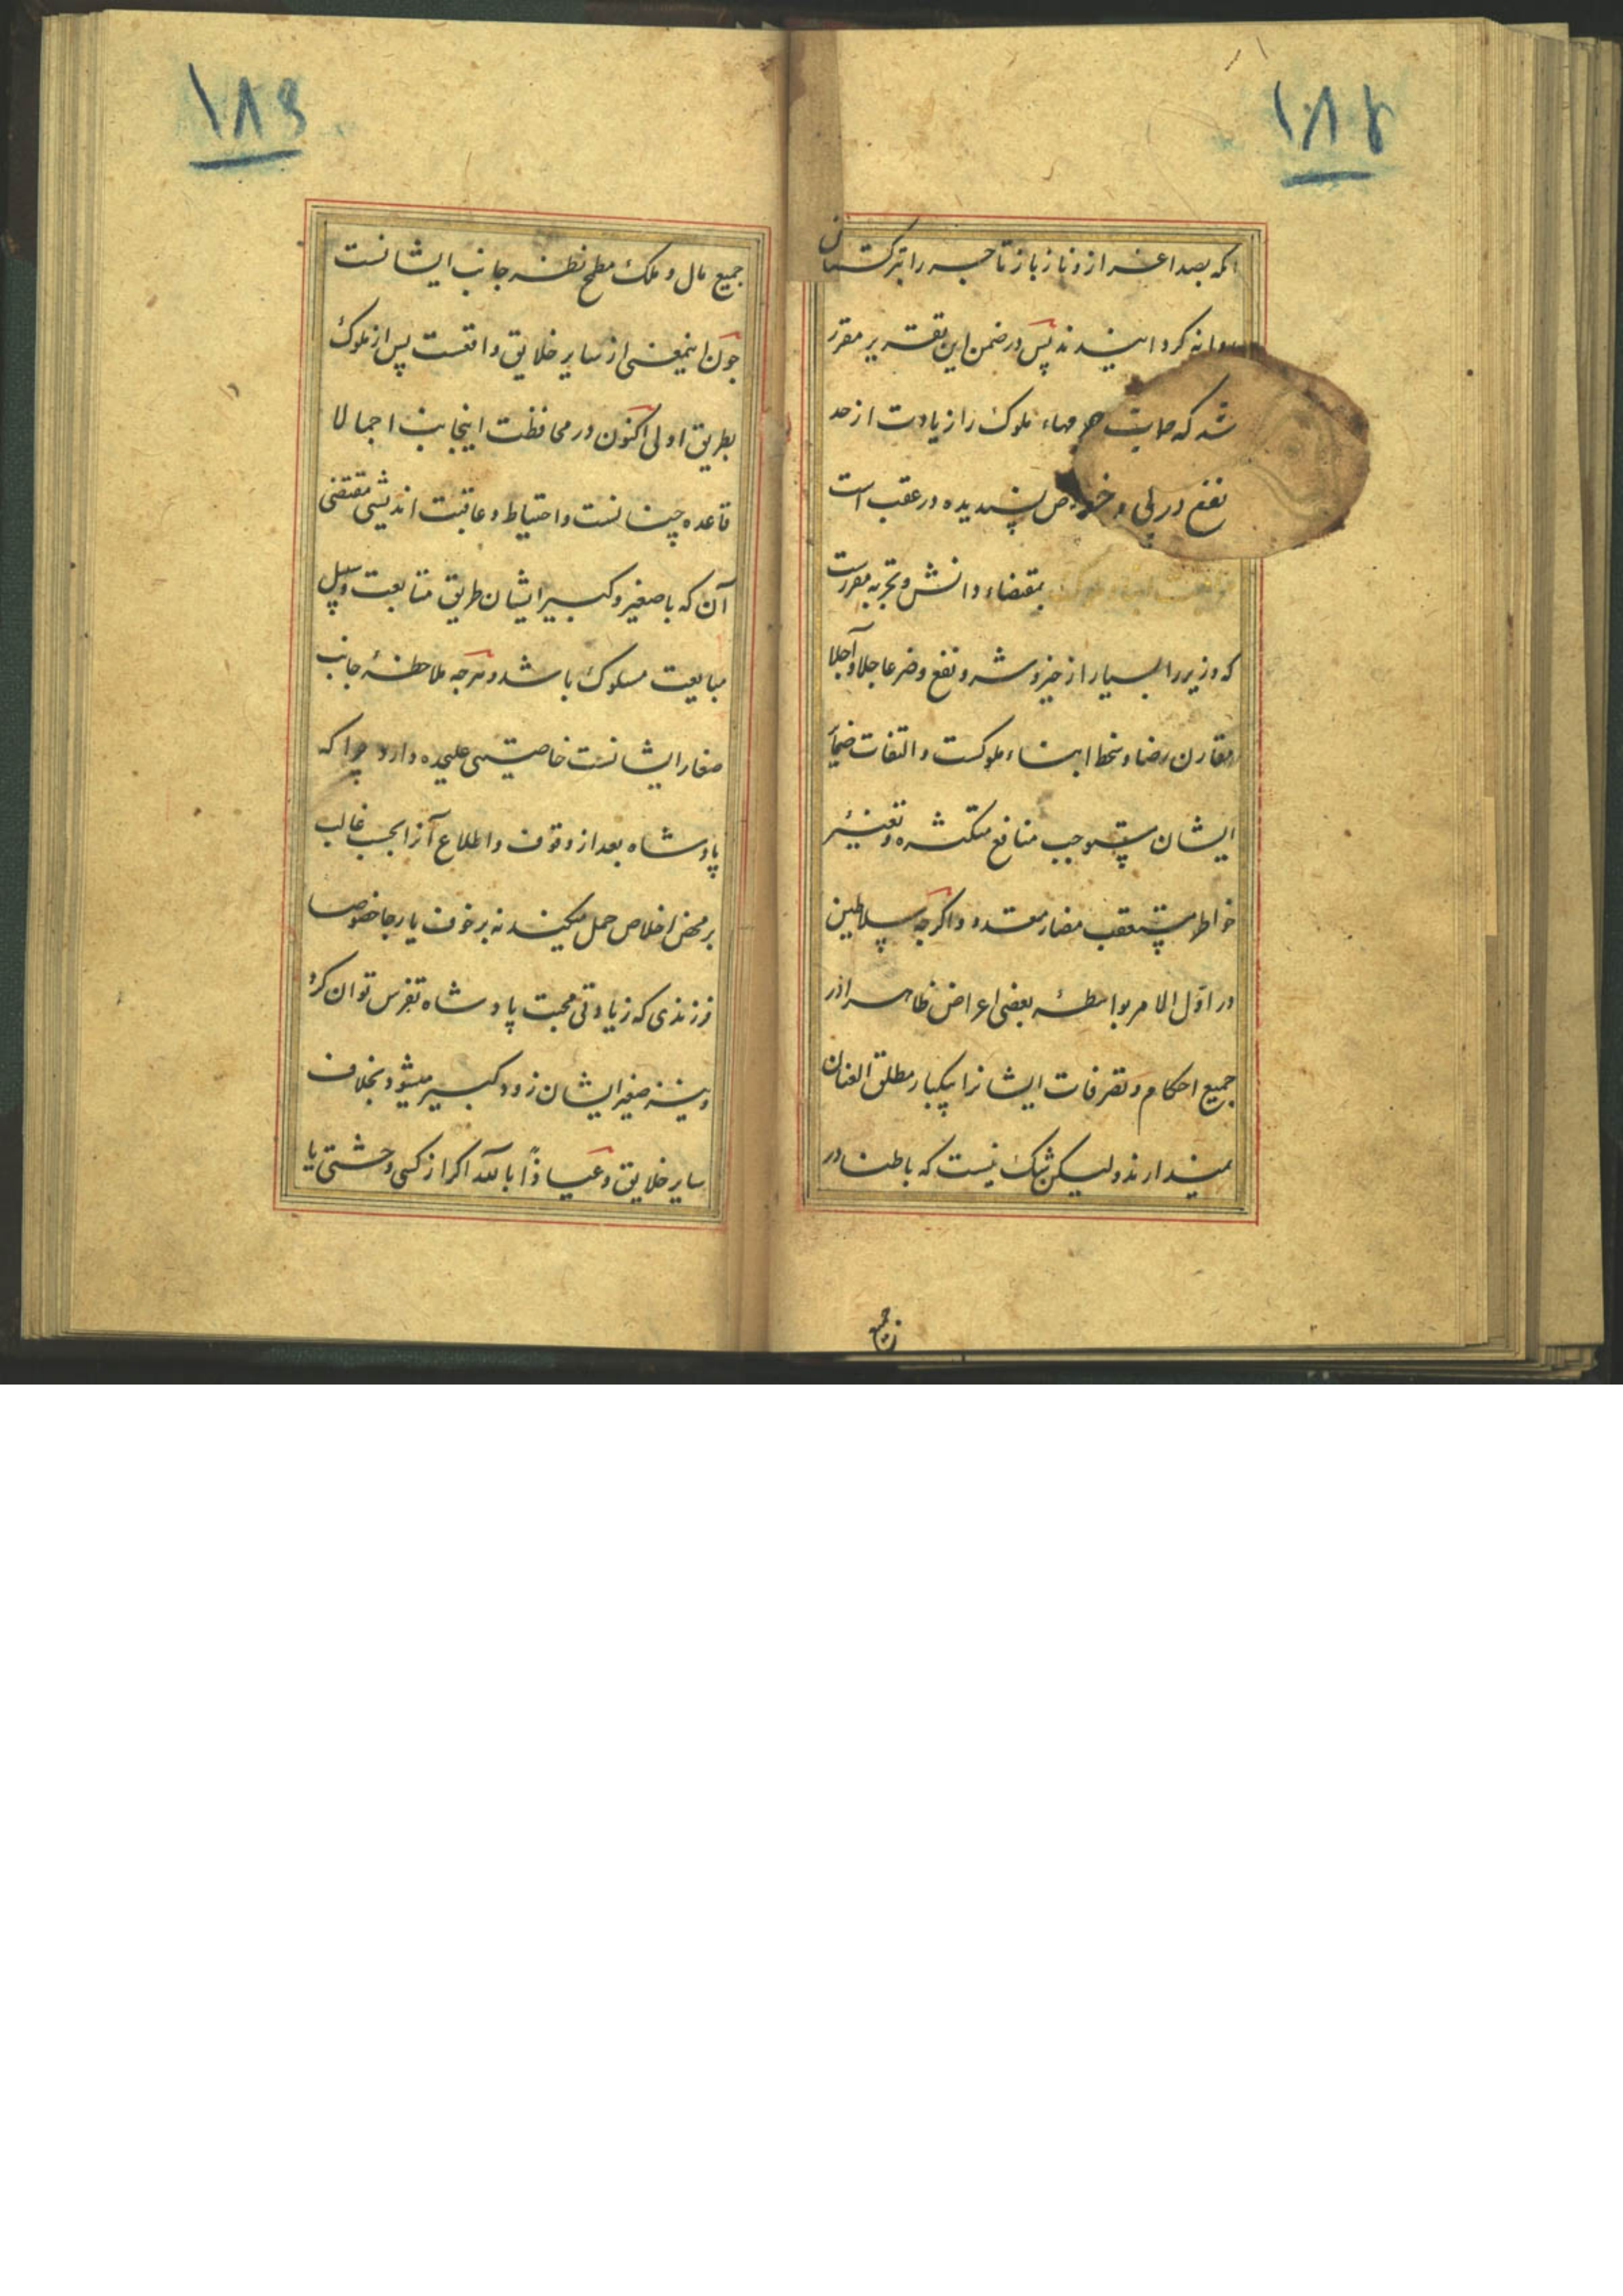 ۱۸۲
بصد اعزاز و ناز باز تاجر را بترکستان
روانه کردانیدند پس در ضمن این تقریر مقرر
شد که حمایت حرمهاء ملوک را زیادت از حد
نفع در پی و خواص پسندیده در عقب است
بمقتضاء دانش و تجربه مقررست
که وزیر را بسیار از خیر و شر و نفع و ضر عاجلا و آجلا
مقارن رضا و سخط ابناء ملوکست و التفات ضمایر
ایشان مستوجب منافع متکثره و تغییر
خواطر مستعقب مضار متعدد و اگرجه سلاطین
در اول الامر بواسطه بعضی اعراض ظاهرا در
جمیع احکام و تصرفات ایشانرا بیکبار مطلق العنان
نمیدارند ولیکن شک نیست که باطنا در
جمیع
۱۸۳
جمیع مال و ملک مطمح نظر جانب ایشانست
جون اینمعنی از سایر خلایق واقعست پس از ملوک
بطریق اولی اکنون در محافظت اینجانب اجمالا
قاعده چنانست و احتیاط و عاقبت اندیشی مقتضی
آن که با صغیر و کبیر ایشان طریق متابعت و سبیل
مبایعت مسلوک باشد و هرجه ملاحظه جانب
صغار ایشانست خاصیتی علیحده دارد چرا که
پادشاه بعد از وقوف و اطلاع آنرا بحسب غالب
بر محض اخلاص حمل میکند نه بر خوف یا رجا خصوصا
فرزندی که زیادتی محبت پادشاه تفرس توان کرد
و نیز صغیر ایشان زود کبیر میشود بخلاف
سایر خلایق و عیاذا بالله اکر از کسی وحشتی یا